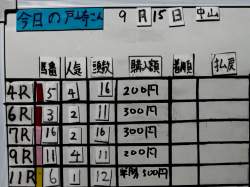 今日の戸崎さん 9月15日 中山
馬番 人気 頭数 購入額 着順 払戻
4R 5 4 16 200円
6R 3 2 11 300円
7R 16 2 16 300円
9R 11 4 11 200円
11R 6 1 12 単勝500円